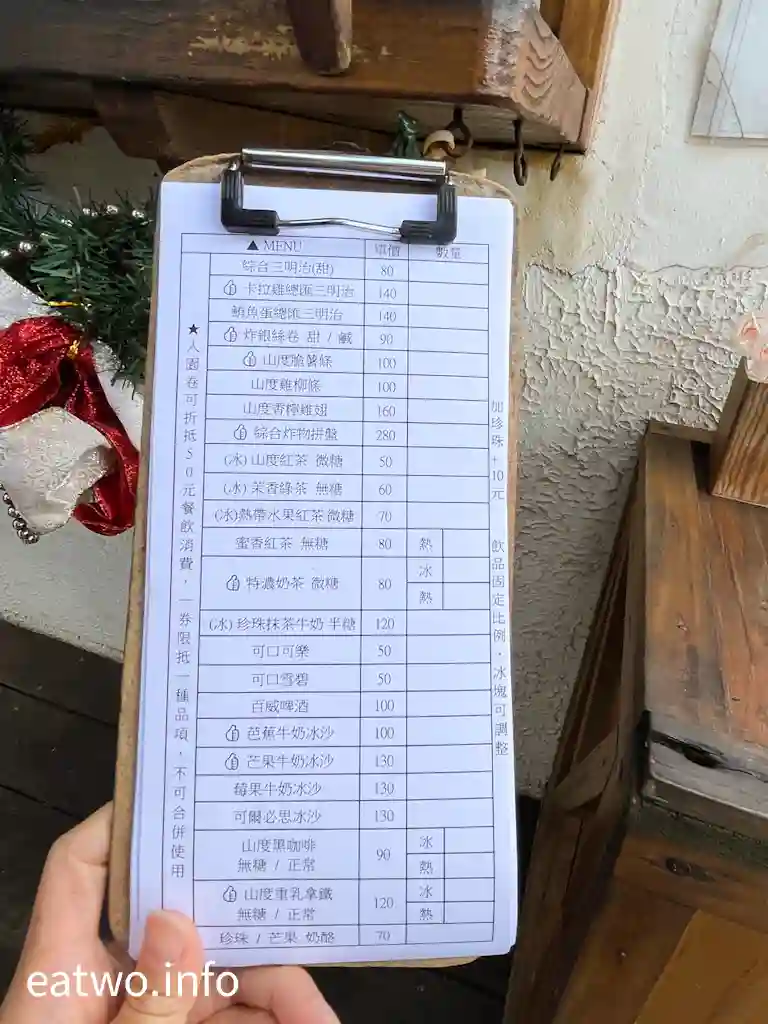 ▲ MENU 單價 數量
綜合三明治(甜) 80
卡拉雞總匯三明治 140
鮪魚蛋總匯三明治 140
炸銀絲卷 甜 / 鹹 90
山度脆薯條 100
山度雞柳條 100
山度香檸雞翅 160
綜合炸物拼盤 280
(冰) 山度紅茶 微糖 50
(冰) 茉香綠茶 無糖 60
(冰)熱帶水果紅茶 微糖 70
蜜香紅茶 無糖 80 熱
特濃奶茶 微糖 80 冰
熱
(冰) 珍珠抹茶牛奶 半糖 120
可口可樂 50
可口雪碧 50
百威啤酒 100
芭蕉牛奶冰沙 100
芒果牛奶冰沙 130
莓果牛奶冰沙 130
可爾必思冰沙 130
山度黑咖啡 90 冰
無糖 / 正常 熱
山度重乳拿鐵 120 冰
無糖 / 正常 熱
珍珠 / 芒果 奶酪 70
★入園卷可折抵50元餐飲消費，一券限抵一種品項，不可合併使用
加珍珠+10元 飲品固定比例．冰塊可調整
eatwo.info